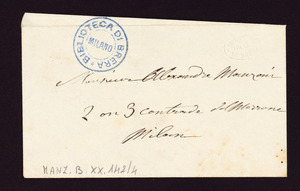 BIBLIOTECA DI BRERA
MILANO
Monsieur Alexandre Manzoni
2 ou 3 contrade del Morone
Milan
MANZ. B. XX. 142/4